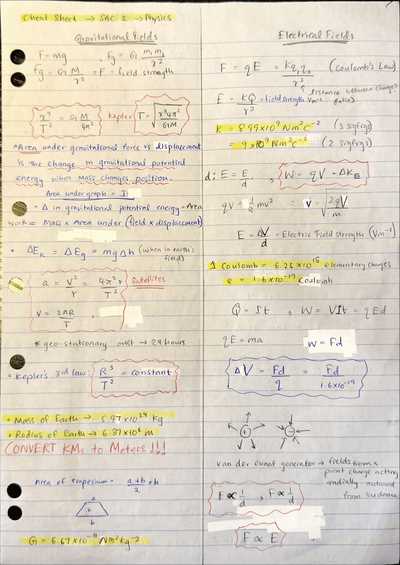 Cheat Sheet → SAC 2 → Physics
Gravitational Fields
F = mg , Fg = G m₁ m₂ / r²
Fg = G M / r² = F = field strength
r³ / T² = GM / 4π² , Kepler T = √ r³4π² / GM
*Area under gravitational force vs displacement
is the change in gravitational potential
energy when Mass changes position.
Area under graph = J
- Δ in gravitational potential energy = Area
work = Mass × Area under (field × displacement)
• ΔEk = ΔEg = mgΔh (when in earth's field)
a = v² / r = 4π² r / T² Satellites
v = 2πR / T
* geo-stationary orbit → 24 hours
• Kepler's 3rd law: R³ / T² = constant
• Mass of Earth → 5.97×10²⁴ kg
• Radius of Earth → 6.37×10⁶ m
CONVERT KMs to Meters!!!
Area of trapezium = a+b / 2 × h
a
h
b
G = 6.67×10⁻¹¹ Nm²kg⁻²
Electrical Fields
F = qE = kq₁q₂ / r² (Coulomb's Law)
distance between charges
E = kQ / r² = field strength
K = 8.99×10⁹ Nm²C⁻² (3 sigfigs)
= 9×10⁹ Nm²C⁻² (2 sigfigs)
W = qV = ΔEk
qV = ½ mv² = v = √ 2qV / m
E = ΔV / d - Electric Field Strength (Vm⁻¹)
1 Coulomb = 6.25×10¹⁸ elementary charges
e = 1.6×10⁻¹⁹ Coulomb
Q = It , W = VIt = qEd
qE = ma W = Fd
ΔV = Fd / q = Fd / 1.6×10⁻¹⁹
+ −
van der Graaf generator → fields from a
point charge acting
radially outward
from surface
F ∝ 1/d , F ∝ 1/d
F ∝ E